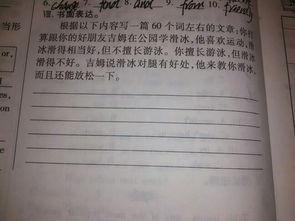 6. change 7. 8. and 9. from 10.
Ⅷ. 书面表达。
根据以下内容写一篇 60 个词左右的文章:你打
算跟你的好朋友吉姆在公园学滑冰,他喜欢运动,滑
冰滑得相当好,但不擅长游泳。你擅长游泳,但滑冰
滑得不好。吉姆说滑冰对腿有好处,他来教你滑冰,
而且还能放松一下。
当形